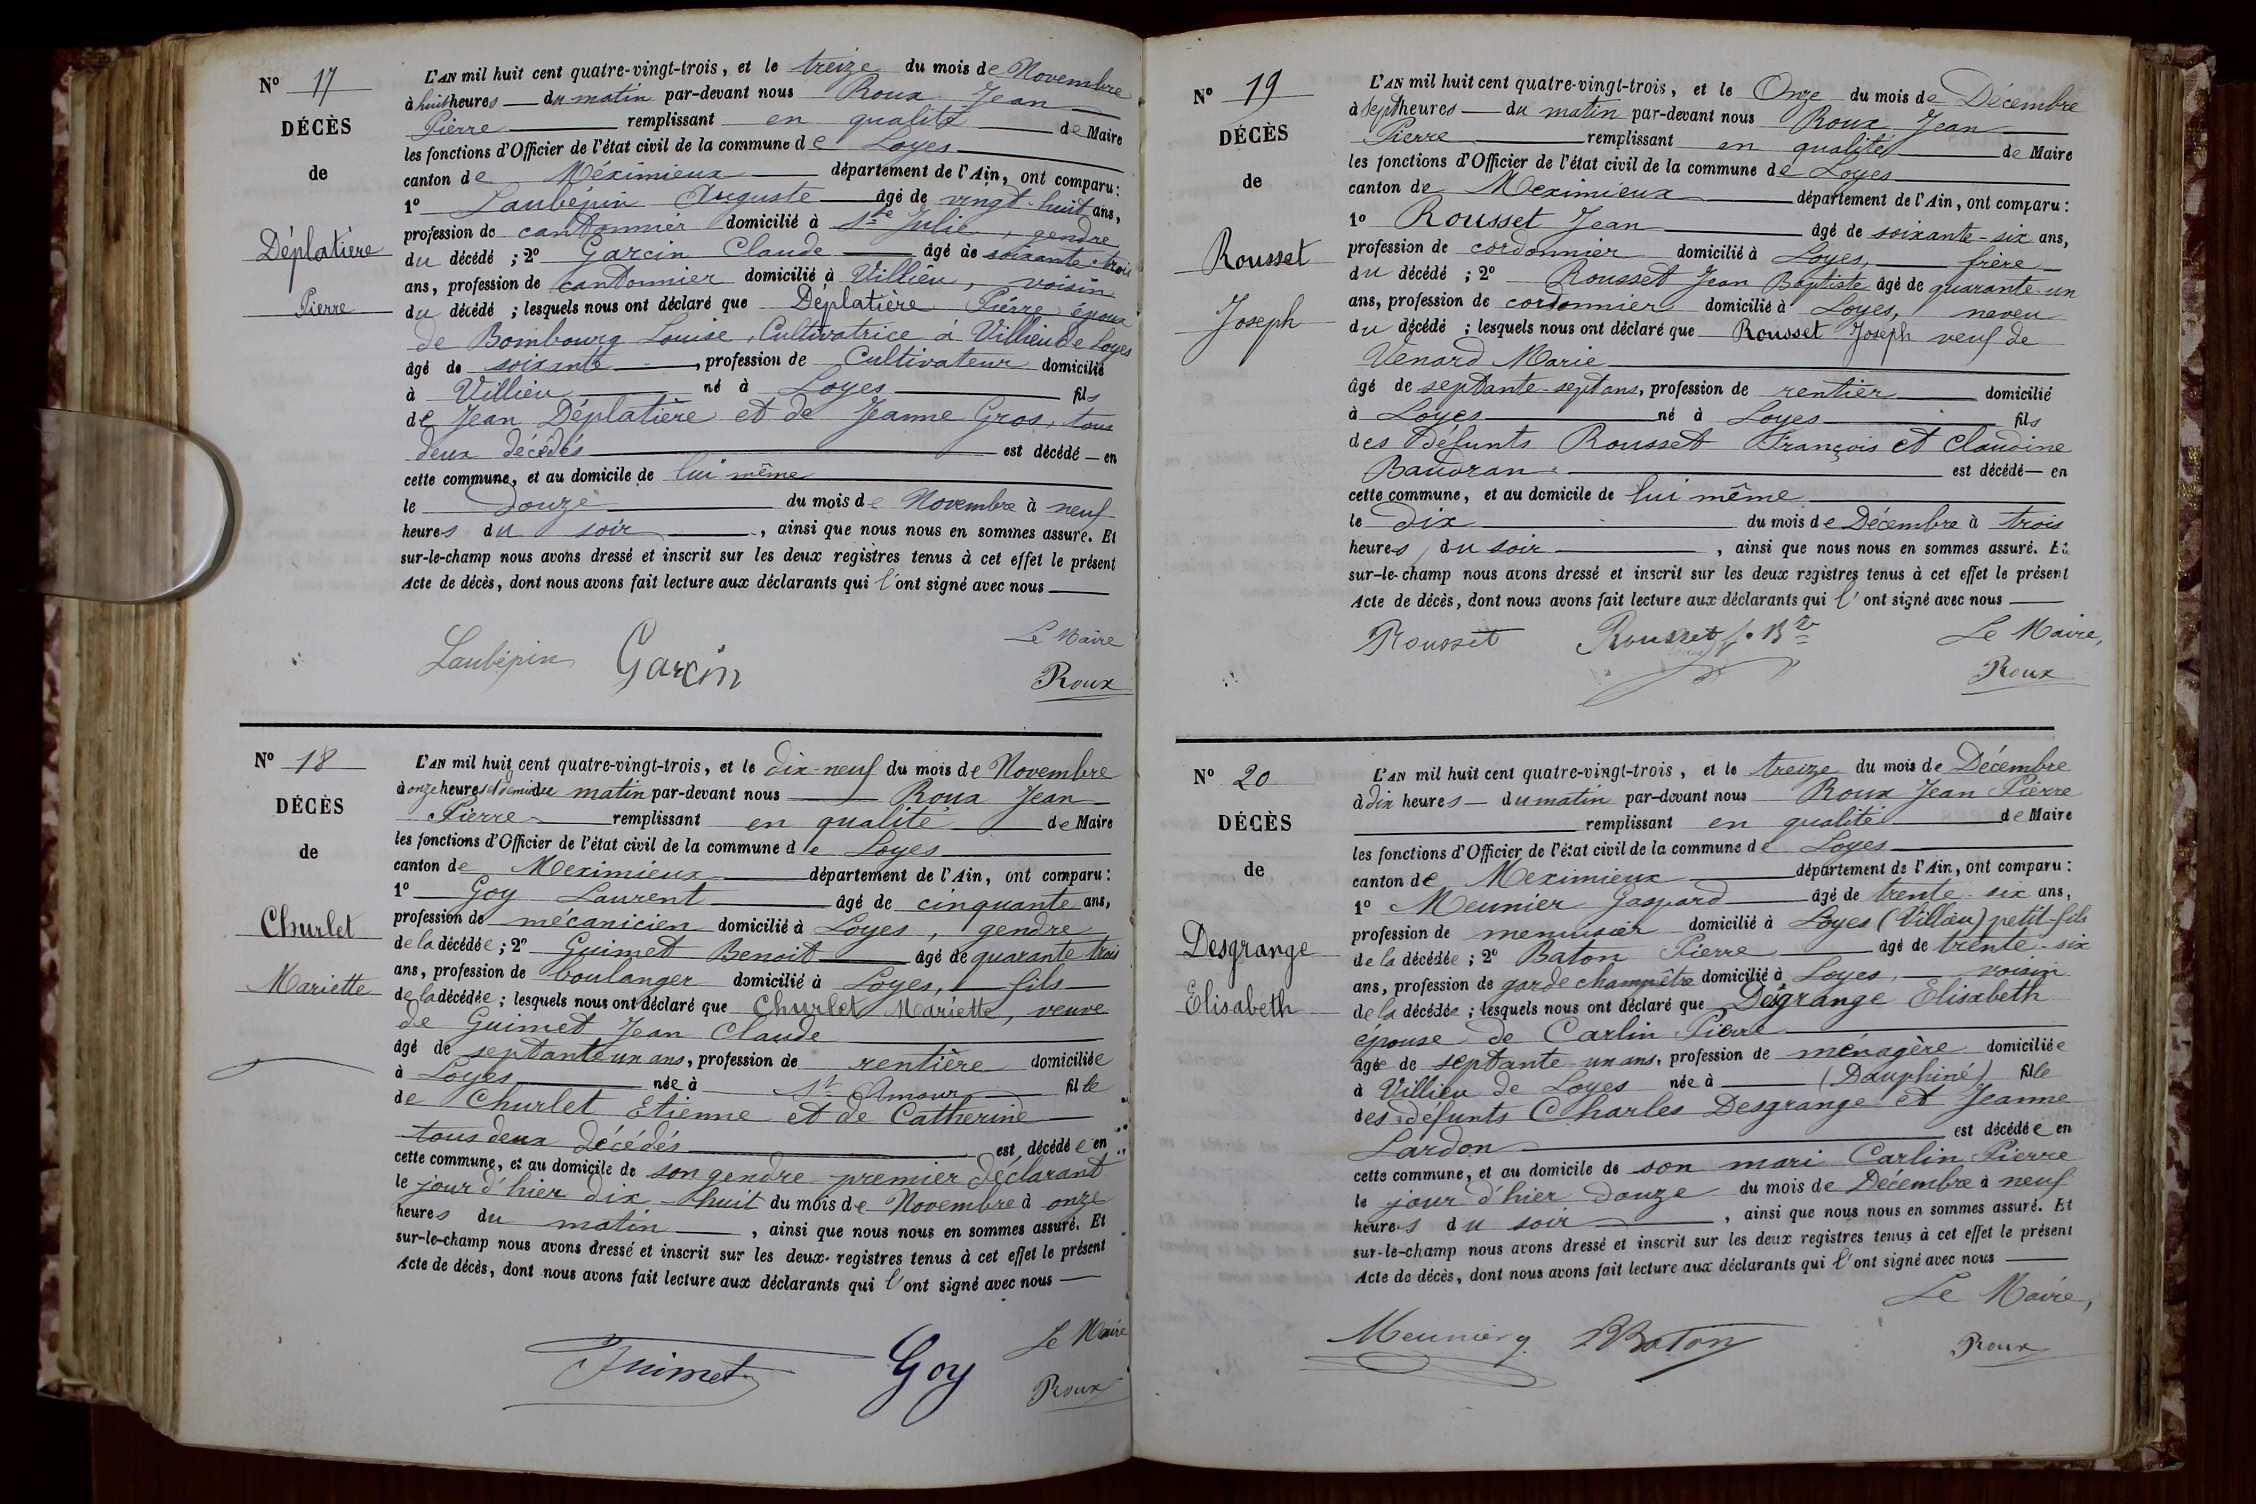 N° 17
DÉCÈS
de
Déplatière
Pierre
L'AN mil huit cent quatre-vingt-trois, et le treize du mois de Novembre
à huit heures du matin par-devant nous Roux Jean
Pierre remplissant en qualité de Maire
les fonctions d'Officier de l'état civil de la commune de Loyes
canton de Méximieux département de l'Ain, ont comparu:
1° Laubépin Auguste âgé de vingt-huit ans,
profession de cantonnier domicilié à Ste Julie, gendre
du décédé; 2° Garcin Claude âgé de soixante-trois
ans, profession de cantonnier domicilié à Villieu, voisin
du décédé; lesquels nous ont déclaré que Déplatière Pierre époux
de Bombourg Louise, Cultivatrice à Villieu de Loyes
âgé de soixante, profession de Cultivateur domicilié
à Villieu né à Loyes fils
de Jean Déplatière et de Jeanne Gros, tous
deux décédés est décédé en
cette commune, et au domicile de lui même
le Douze du mois de Novembre à neuf
heures du soir, ainsi que nous nous en sommes assuré. Et
sur-le-champ nous avons dressé et inscrit sur les deux registres tenus à cet effet le présent
Acte de décès, dont nous avons fait lecture aux déclarants qui l'ont signé avec nous
Le Maire
Laubépin Garcin Roux
N° 18
DÉCÈS
de
Churlet
Mariette
L'AN mil huit cent quatre-vingt-trois, et le dix-neuf du mois de Novembre
à onze heures et demie du matin par-devant nous Roux Jean
Pierre remplissant en qualité de Maire
les fonctions d'Officier de l'état civil de la commune de Loyes
canton de Meximieux département de l'Ain, ont comparu:
1° Goy Laurent âgé de cinquante ans,
profession de mécanicien domicilié à Loyes, gendre
de la décédée; 2° Guimet Benoit âgé de quarante trois
ans, profession de boulanger domicilié à Loyes, fils
de la décédée; lesquels nous ont déclaré que Churlet Mariette, veuve
de Guimet Jean Claude
âgé de septante un ans, profession de rentière domiciliée
à Loyes née à St Amour fille
de Churlet Etienne et de Catherine
tous deux décédés est décédée en
cette commune, et au domicile de son gendre premier déclarant
le jour d'hier dix-huit du mois de Novembre à onze
heures du matin, ainsi que nous nous en sommes assuré. Et
sur-le-champ nous avons dressé et inscrit sur les deux registres tenus à cet effet le présent
Acte de décès, dont nous avons fait lecture aux déclarants qui l'ont signé avec nous
Le Maire
Guimet Goy Roux
N° 19
DÉCÈS
de
Rousset
Joseph
L'AN mil huit cent quatre-vingt-trois, et le Onze du mois de Décembre
à Sept heures du matin par-devant nous Roux Jean
Pierre remplissant en qualité de Maire
les fonctions d'Officier de l'état civil de la commune de Loyes
canton de Meximieux département de l'Ain, ont comparu:
1° Rousset Jean âgé de soixante-six ans,
profession de cordonnier domicilié à Loyes, frère
du décédé; 2° Rousset Jean Baptiste âgé de quarante-un
ans, profession de cordonnier domicilié à Loyes, neveu
du décédé; lesquels nous ont déclaré que Rousset Joseph veuf de
Venard Marie
âgé de septante-sept ans, profession de rentier domicilié
à Loyes né à Loyes fils
des Défunts Rousset François et Claudine
Baudran est décédé en
cette commune, et au domicile de lui même
le Dix du mois de Décembre à trois
heures du soir, ainsi que nous nous en sommes assuré. Et
sur-le-champ nous avons dressé et inscrit sur les deux registres tenus à cet effet le présent
Acte de décès, dont nous avons fait lecture aux déclarants qui l'ont signé avec nous
Rousset Rousset J. Bte Le Maire,
Roux
N° 20
DÉCÈS
de
Desgrange
Elisabeth
L'AN mil huit cent quatre-vingt-trois, et le treize du mois de Décembre
à dix heures du matin par-devant nous Roux Jean Pierre
remplissant en qualité de Maire
les fonctions d'Officier de l'état civil de la commune de Loyes
canton de Meximieux département de l'Ain, ont comparu:
1° Meunier Gaspard âgé de trente-six ans,
profession de menuisier domicilié à Loyes (Villieu) petit-fils
de la décédée; 2° Baton Pierre âgé de trente-six
ans, profession de garde champêtre domicilié à Loyes, voisin
de la décédée; lesquels nous ont déclaré que Desgrange Elisabeth
épouse de Carlin Pierre
âgée de septante-un ans, profession de ménagère domiciliée
à Villieu de Loyes née à (Dauphiné) fille
des défunts Charles Desgrange et Jeanne
Lardon est décédée en
cette commune, et au domicile de son mari Carlin Pierre
le jour d'hier douze du mois de Décembre à neuf
heures du soir, ainsi que nous nous en sommes assuré. Et
sur-le-champ nous avons dressé et inscrit sur les deux registres tenus à cet effet le présent
Acte de décès, dont nous avons fait lecture aux déclarants qui l'ont signé avec nous
Le Maire,
Meunier g. PBaton Roux